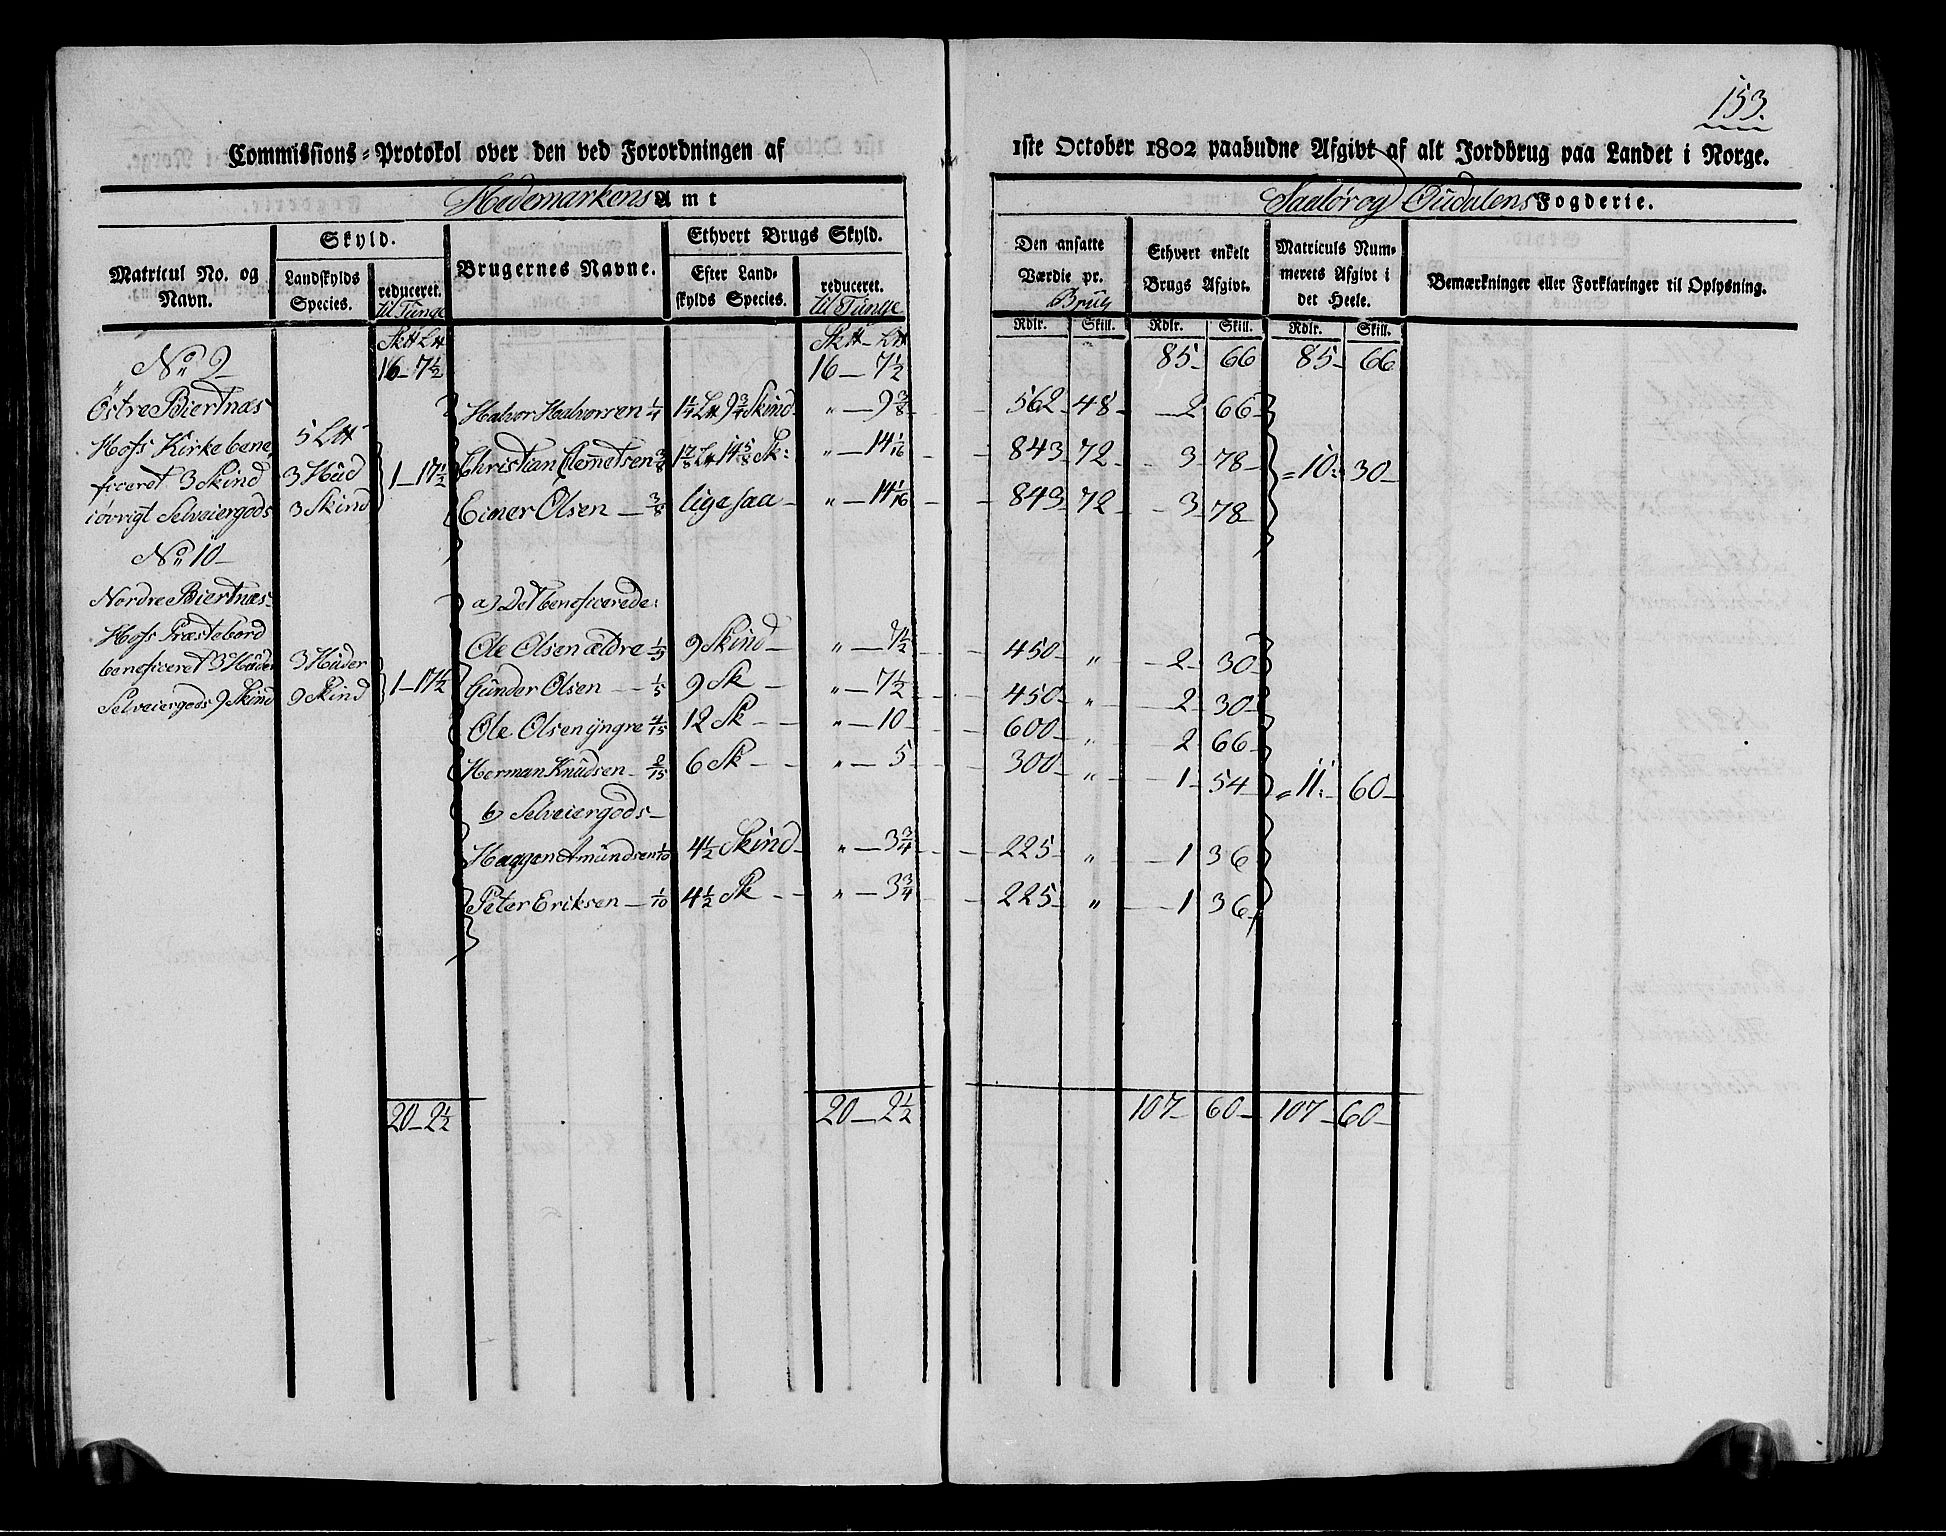 153.
Commissions-Protokol over den ved Forordningen af 1ste October 1802 paabudne Afgivt af alt Jordbrug paa Landet i Norge.
Hedemarkens Amt
Saalør og Oudalens Fogderie.
Matricul No. og Navn.
Skyld.
Landskylds Species.
reduceret. til Tunge
Brugernes Navne.
Ethvert Brugs Skyld.
Efter Landskylds Species.
reduceret. til Tunge
Den ansatte Værdie pr. Brug
Rdlr. Skill.
Ethvert enkelt Brugs Afgivt.
Rdlr. Skill.
Matriculs Nummerets Afgivt i det Heele.
Rdlr. Skill.
Bemærkninger eller Forklaringer til Oplysning.
Sk℔ L℔ Sk℔ L℔
16 7½ 16 — 7½ 85 66 85 66
No 9
Östre Biertnæs
Hofs Kirke bene
ficeret 3 Skind
iøvrigt Selveiergods
5 L℔
3 Hud
3 Skind
1 — 17½
Halvor Halvorsen ¼ 1¼ L℔ 9¾ Skind " — 9⅜ 562 48 2 66
Christian Clemetsen ⅜ 1⅞ L℔ 14⅝ Sk: " — 14 1/16 843 72 3 78
Eimer Olsen ⅜ lige saa " — 14 1/16 843 72 3 78
10 30
No 10
Nordre Biertnæs
Hofs Præstebord
beneficeret 3 Huder
Selveiergods 9 Skind
3 Huder
9 Skind
1 — 17½
a) Det beneficerede:
Ole Olsen ældre 1/5 9 Skind " — 7½ 450 " 2 30
Gunder Olsen 1/5 9 Sk " — 7½ 450 " 2 30
Ole Olsen yngre 4/15 12 Sk " — 10 600 " 2 66
Herman Knudsen 2/15 6 Sk " — 5 300 " 1 54
11 60
b) Selveiergods
Haagen Amundsen 1/10 4½ Skind " — 3¾ 225 " 1 36
Peter Eriksen 1/10 4½ Sk " — 3¾ 225 " 1 36
20 — 2½ 20 — 2½ 107 60 107 60